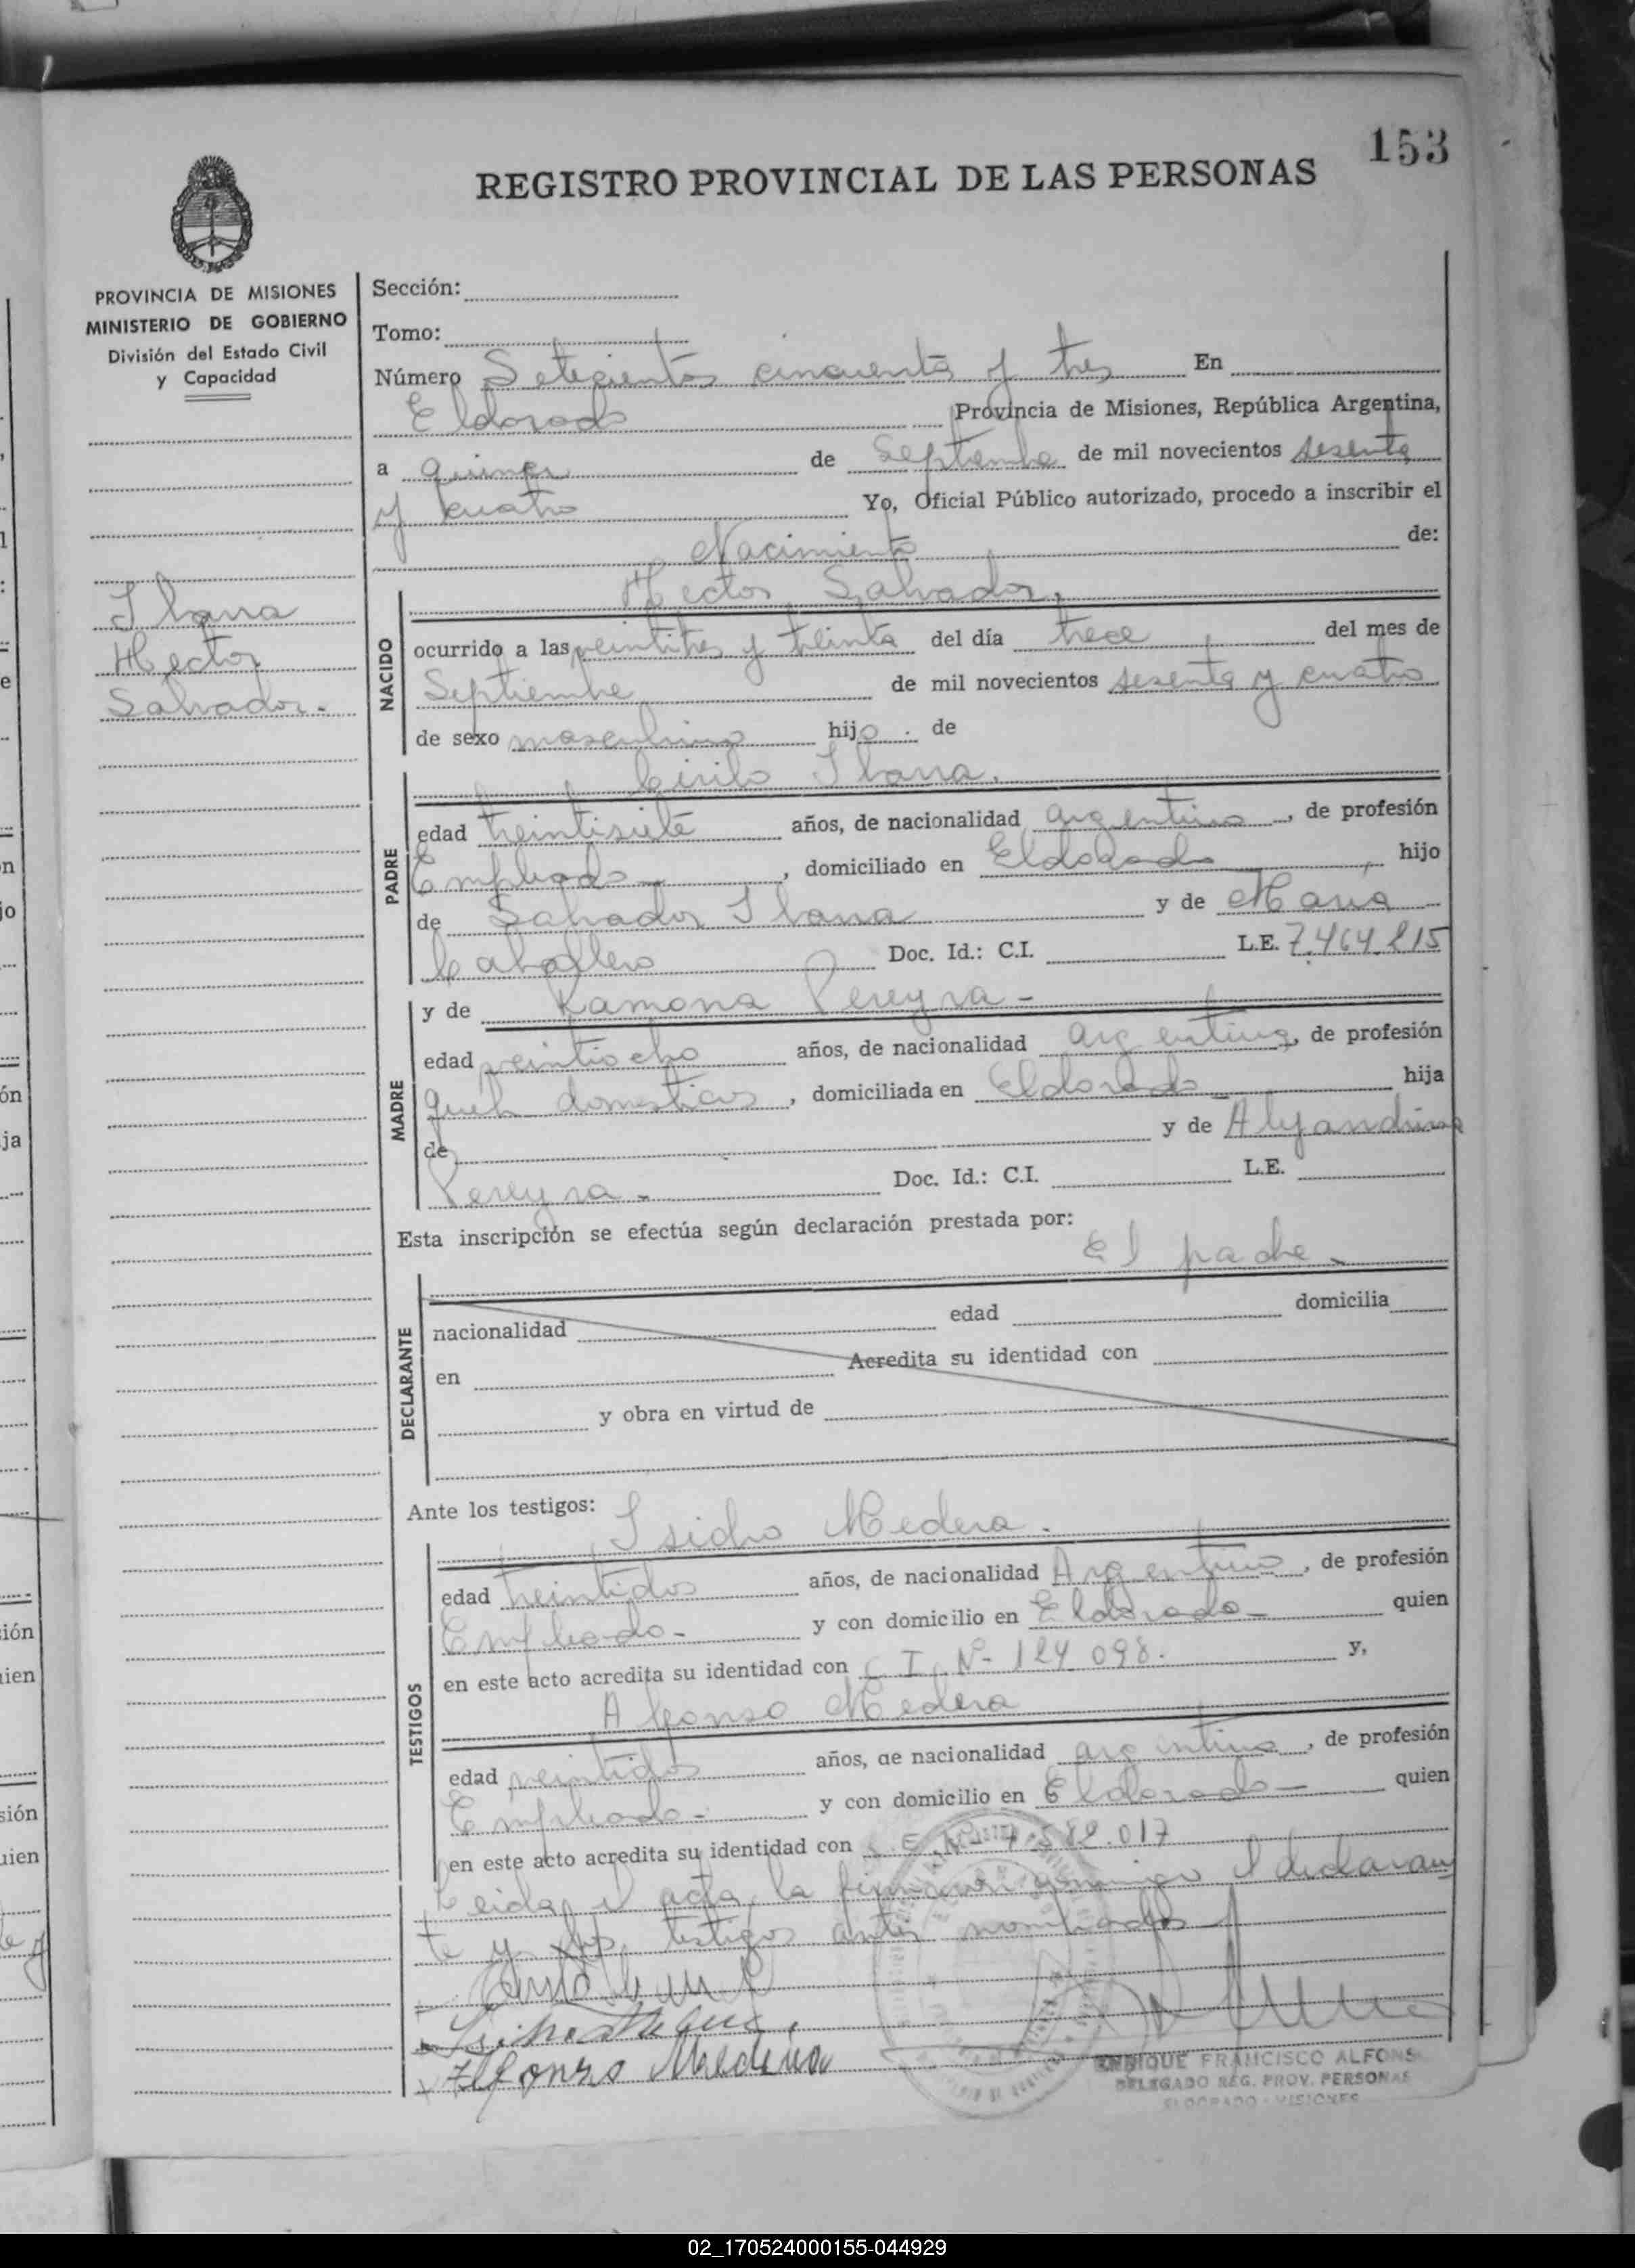 153
REGISTRO PROVINCIAL DE LAS PERSONAS
PROVINCIA DE MISIONES
MINISTERIO DE GOBIERNO
División del Estado Civil
y Capacidad
Sección:
Tomo:
Número Setecientos cincuenta y tres En
Eldorado Provincia de Misiones, República Argentina,
a quince de Septiembre de mil novecientos sesenta
y cuatro Yo, Oficial Público autorizado, procedo a inscribir el
Nacimiento de:
Hector Salvador.
Ibarra
Hector
Salvador.-
NACIDO
ocurrido a las veintitres y treinta del día trece del mes de
Septiembre de mil novecientos sesenta y cuatro
de sexo masculino hijo. de
Cirilo Ibarra.
PADRE
edad treintisiete años, de nacionalidad argentino, de profesión
Empleado, domiciliado en Eldorado, hijo
de Salvador Ibarra y de Maria
Caballero Doc. Id.: C.I. L.E. 7.464.215
MADRE
y de Ramona Pereyra-
edad veintiocho años, de nacionalidad argentina, de profesión
queh domesticos, domiciliada en Eldorado hija
de y de Alejandrina
Pereyra- Doc. Id.: C.I. L.E.
Esta inscripción se efectúa según declaración prestada por:
El padre-
DECLARANTE
nacionalidad edad domicilia
en Acredita su identidad con
y obra en virtud de
Ante los testigos:
Isidro Medera.
TESTIGOS
edad treintidos años, de nacionalidad Argentino, de profesión
Empleado- y con domicilio en Eldorado- quien
en este acto acredita su identidad con C I. Nº 124 098. y,
Alfonso Medera
edad veintidos años, de nacionalidad argentino, de profesión
Empleado- y con domicilio en Eldorado- quien
en este acto acredita su identidad con L.E. Nº 7.582.017
Leida el acta, la firman conmigo el declaran
te y los testigos antes nombrados
Alfonso
ENRIQUE FRANCISCO ALFONS
DELEGADO REG. PROV. PERSONAS
ELDORADO - MISIONES
02_170524000155-044929